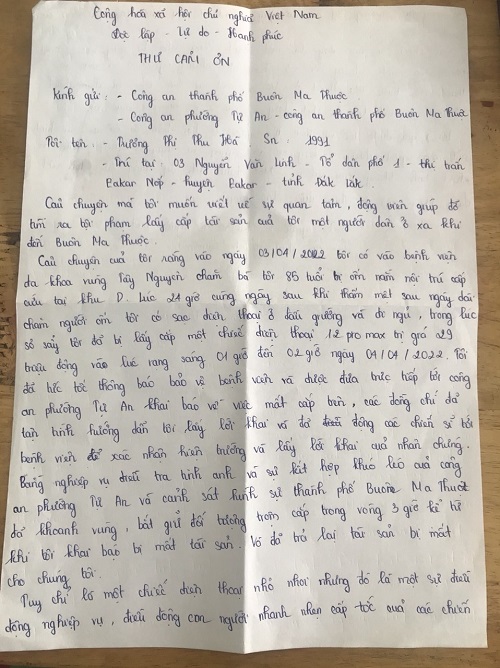 Cộng hòa xã hội chủ nghĩa Việt Nam
Độc lập - Tự do - Hạnh phúc
THƯ CẢM ƠN
Kính gửi: - Công an thành phố Buôn Ma Thuột.
- Công an phường Tự An - công an thành phố Buôn Ma Thuột
Tôi tên: - Trương Thị Thu Hà Sn: 1991
- Trú tại: 03 Nguyễn Văn Linh - Tổ dân phố 1 - thị trấn
Eakar Nốp - huyện Eakar - tỉnh Đắk Lắk.
Câu chuyện mà tôi muốn viết về sự quan tâm, động viên giúp đỡ
tìm ra tội phạm lấy cấp tài sản của tôi một người dân ở xa khi
đến Buôn Ma Thuột.
Câu chuyện của tôi rằng vào ngày 03/04/2022 tôi có vào bệnh viện
đa khoa vùng Tây Nguyên chăm bà tôi 85 tuổi bị ốm nằm nội trú cấp
cứu tại khu D. Lúc 21 giờ cùng ngày sau khi thấm mệt sau ngày dài
chăm người ốm tôi có sạc điện thoại ở đầu giường và đi ngủ, trong lúc
sơ sẩy tôi đã bị lấy cấp một chiếc điện thoại 12 pro max trị giá 29
triệu đồng vào lúc rạng sáng 01 giờ đến 02 giờ ngày 04/04/2022. Tôi
đã tức tốc thông báo bảo vệ bệnh viện và được đưa trực tiếp tới công
an phường Tự An khai báo về việc mất cấp trên, các đồng chí đã
tận tình hướng dẫn tôi lấy lời khai và đã điều động các chiến sĩ tới
bệnh viện để xác nhận hiện trường và lấy lời khai của nhân chứng.
Bằng nghiệp vụ điều tra tinh anh và sự kết hợp khéo léo của công
an phường Tự An và cảnh sát hình sự thành phố Buôn Ma Thuột
đã khoanh vùng, bắt giữ đối tượng trộm cấp trong vòng 3 giờ kể từ
khi tôi khai báo bị mất tài sản. Và đã trả lại tài sản bị mất
cho chúng tôi.
Tuy chỉ là một chiếc điện thoại nhỏ nhoi nhưng đó là một sự điều
động nghiệp vụ, điều động con người nhanh nhẹn cấp tốc của các chiến